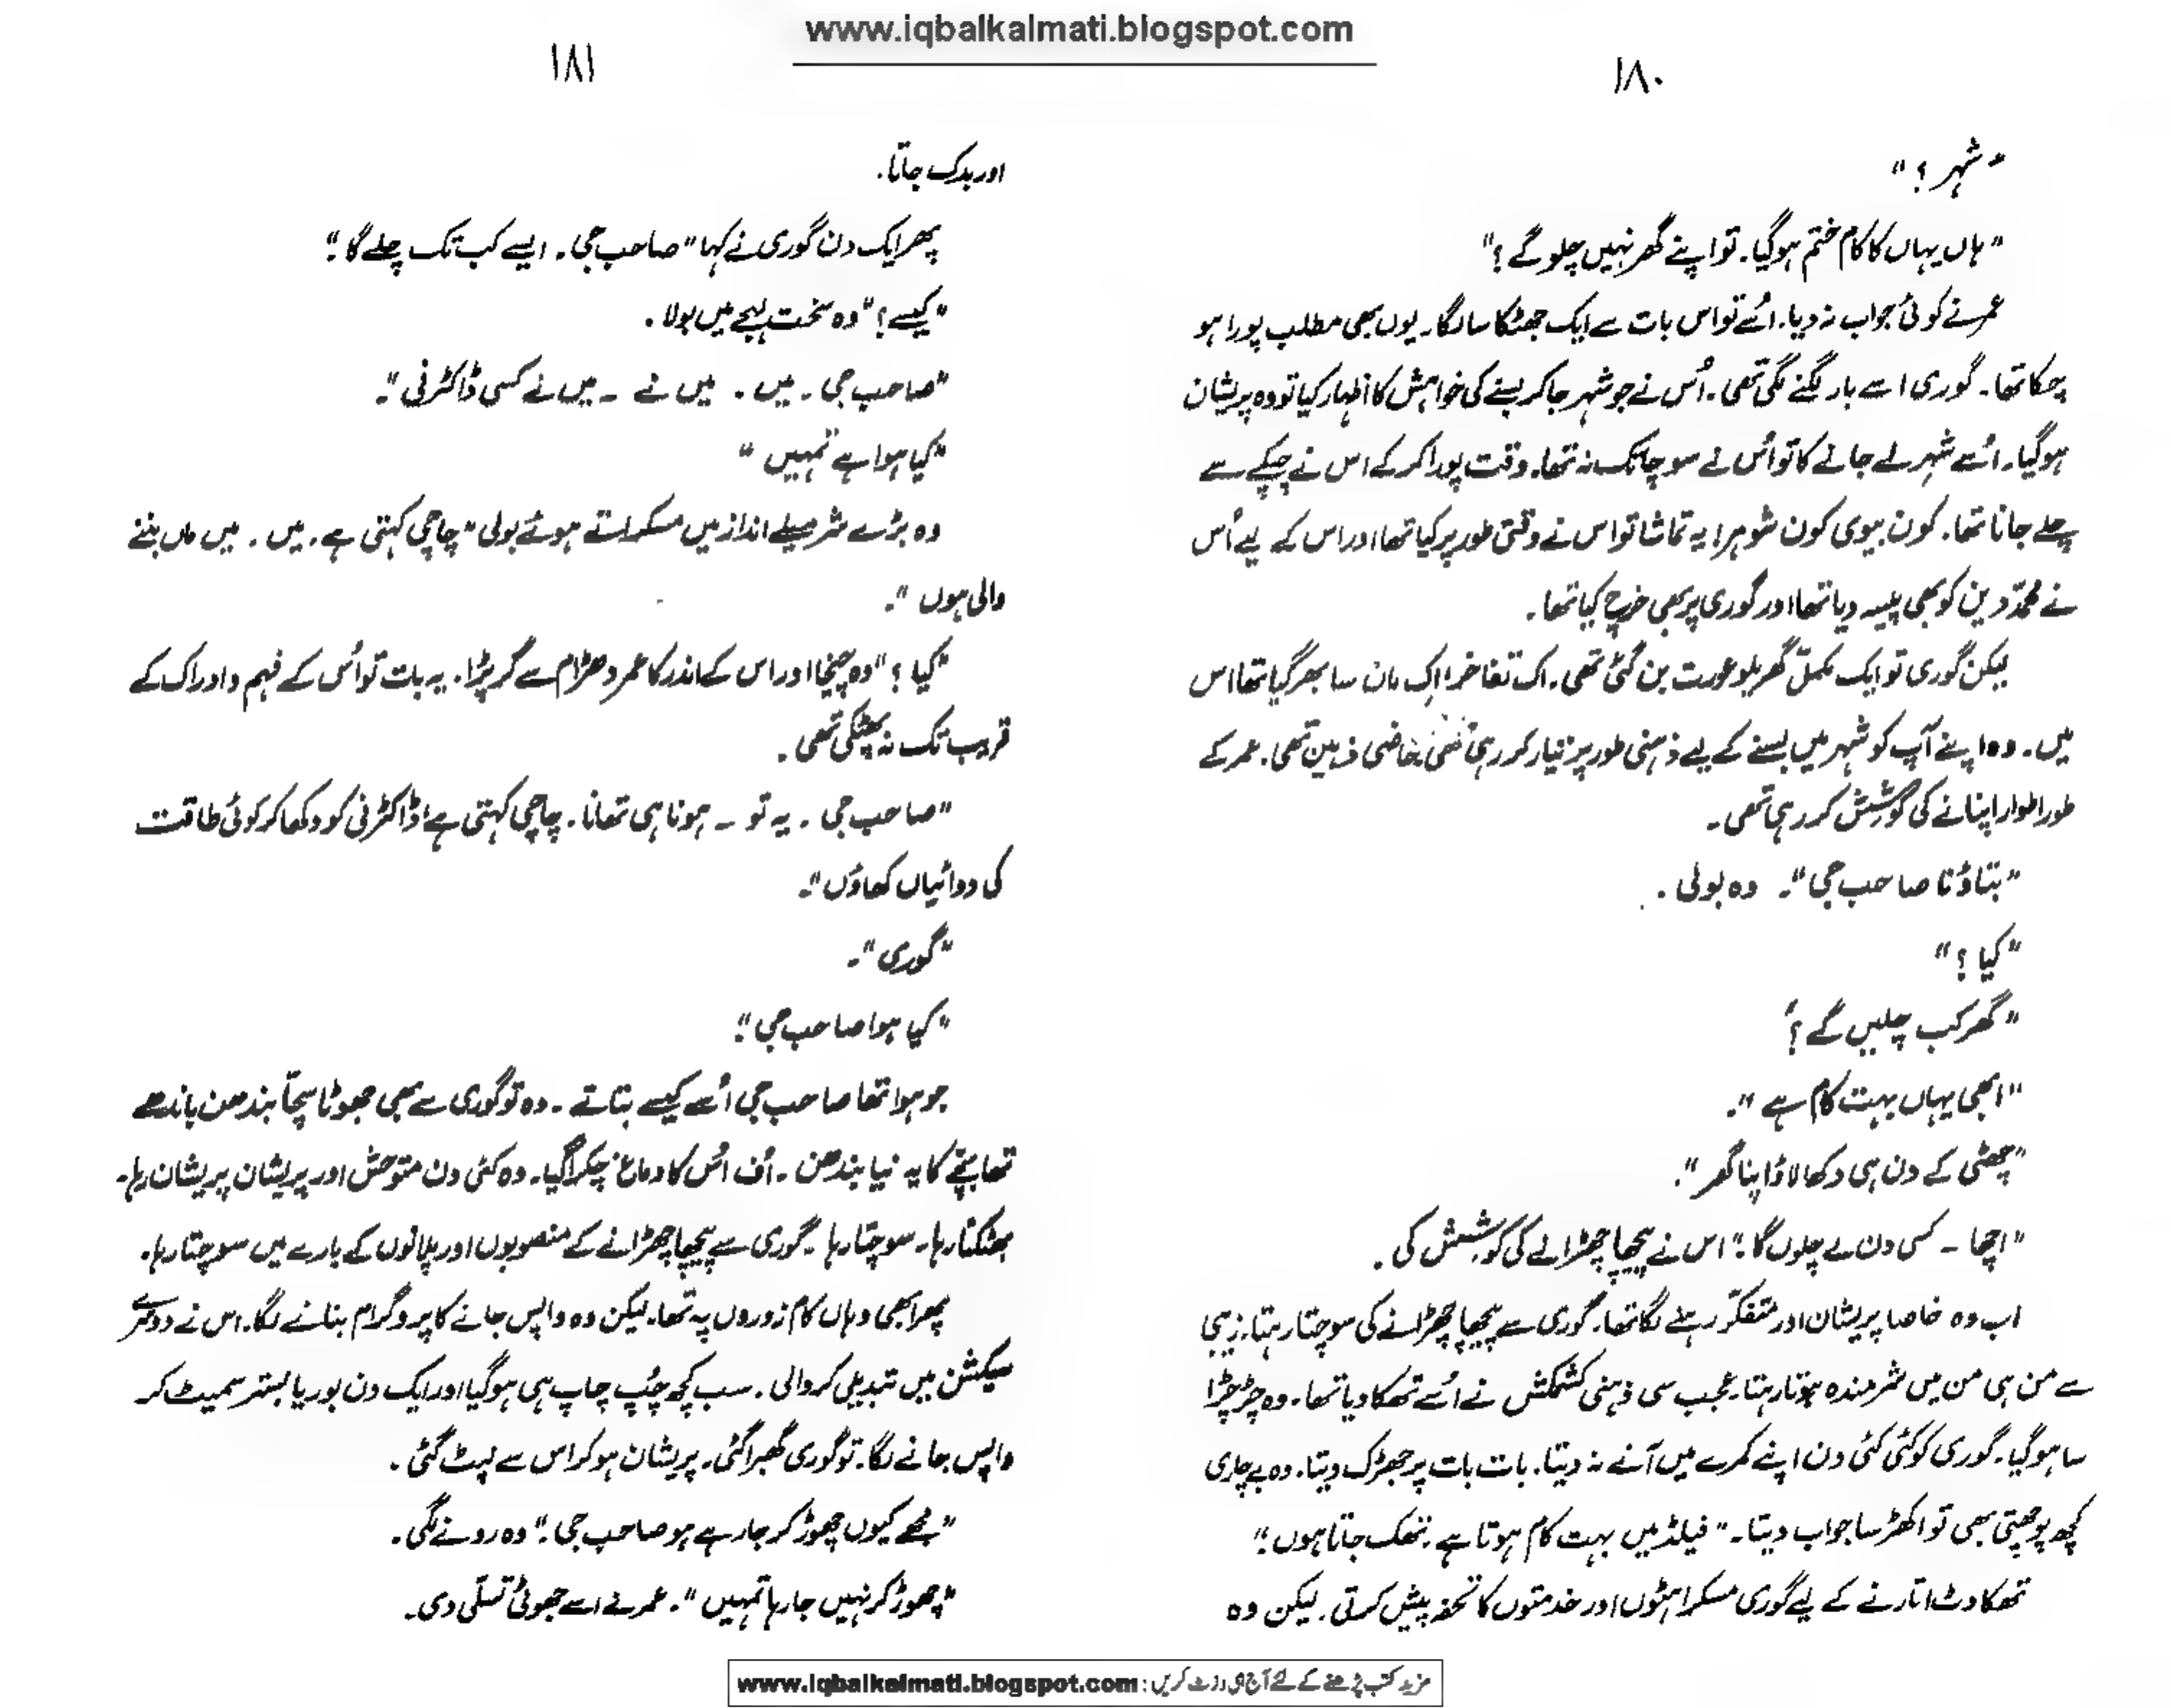 www.iqbalkalmati.blogspot.com
۱۸۰
"شہر؟"
"ہاں یہاں کا کام ختم ہوگیا۔ تو اپنے گھر نہیں چلو گے؟"
عمر نے کوئی جواب نہ دیا۔ اُسے تو اس بات سے ایک جھٹکا سا لگا۔ یوں بھی مطلب پورا ہو
چکا تھا۔ گوری اسے بار لگنے لگی تھی۔ اُس نے جو شہر جا کر بسنے کی خواہش کا اظہار کیا تو وہ پریشان
ہوگیا۔ اُسے شہر لے جانے کا تو اُس نے سوچا تک نہ تھا۔ وقت پورا کر کے اس نے چپکے سے
چلے جانا تھا۔ کون بیوی کون شوہر! یہ تماشا تو اس نے وقتی طور پر کیا تھا اور اس کے لیے اُس
نے محمد دین کو بھی پیسہ دیا تھا اور گوری پر بھی خرچ کیا تھا۔
لیکن گوری تو ایک مکمل گھریلو عورت بن گئی تھی۔ اک تفاخر اک مان سا بھر گیا تھا اس
میں۔ وہ اپنے آپ کو شہر میں بسنے کے لیے ذہنی طور پر تیار کر رہی تھی۔ خاصی ذہین تھی۔ عمر کے
طور اطوار اپنانے کی کوشش کر رہی تھی۔
"بتاؤ نا صاحب جی"۔ وہ بولی۔
"کیا؟"
"گھر کب چلیں گے؟"
"ابھی یہاں بہت کام ہے"۔
"چھٹی کے دن ہی دکھا لاؤ اپنا گھر"۔
"اچھا ۔ کسی دن لے چلوں گا۔" اس نے پیچھا چھڑانے کی کوشش کی۔
اب وہ خاصا پریشان اور متفکّر رہنے لگا تھا۔ گوری سے پیچھا چھڑانے کی سوچتا رہتا۔ زیبی
سے من ہی من میں شرمندہ ہوتا رہتا۔ عجب سی ذہنی کشمکش نے اُسے تھکا دیا تھا۔ وہ چڑچڑا
سا ہوگیا۔ گوری کو کئی کئی دن اپنے کمرے میں آنے نہ دیتا۔ بات بات پر جھڑک دیتا۔ وہ بے چاری
کچھ پوچھتی بھی تو اکھڑ سا جواب دیتا۔ "فیلڈ میں بہت کام ہوتا ہے۔ تھک جاتا ہوں۔"
تھکاوٹ اتارنے کے لیے گوری مسکراہٹوں اور خدمتوں کا تحفہ پیش کرتی۔ لیکن وہ
۱۸۱
اور بدک جاتا۔
پھر ایک دن گوری نے کہا "صاحب جی۔ ایسے کب تک چلے گا۔"
"کیسے؟" وہ سخت لہجے میں بولا۔
"صاحب جی۔ میں۔ میں نے ۔ میں نے کسی ڈاکٹرنی"۔
"کیا ہوا ہے تمہیں"
وہ بڑے شرمیلے انداز میں مسکراتے ہوئے بولی "چاچی کہتی ہے۔ میں۔ میں ماں بننے
والی ہوں"۔
"کیا؟" وہ چیخا اور اس کے اندر کا عمر دھڑام سے گر پڑا۔ یہ بات تو اُس کے فہم و ادراک کے
قریب تک نہ پھٹکی تھی۔
"صاحب جی ۔ یہ تو ۔ ہونا ہی تھا نا۔ چاچی کہتی ہے ڈاکٹرنی کو دکھا کر کوئی طاقت
کی دوائیاں کھاؤں"۔
"گوری"۔
"کیا ہوا صاحب جی۔"
جو ہوا تھا صاحب جی اُسے کیسے بتاتے۔ وہ تو گوری سے بھی جھوٹا سچّا بندھن باندھے
تھا بچے کا یہ نیا بندھن ۔ اُف اُس کا دماغ چکرا گیا۔ وہ کئی دن متوحش اور پریشان پریشان رہا۔
بھٹکتا رہا۔ سوچتا رہا۔ گوری سے پیچھا چھڑانے کے منصوبوں اور پلانوں کے بارے میں سوچتا رہا۔
پھر ابھی وہاں کام زوروں پہ تھا۔ لیکن وہ واپس جانے کا پروگرام بنانے لگا۔ اس نے دوسرے
سیکشن میں تبدیلی کروالی۔ سب کچھ چُپ چاپ ہی ہوگیا اور ایک دن بوریا بستر سمیٹ کر
واپس جانے لگا۔ تو گوری گھبرا گئی۔ پریشان ہو کر اس سے لپٹ گئی۔
"مجھے کیوں چھوڑ کر جا رہے ہو صاحب جی۔" وہ رونے لگی۔
"چھوڑ کر نہیں جا رہا تمہیں"۔ عمر نے اسے جھوٹی تسلّی دی۔
مزید کتب پڑھنے کے لئے آج ہی وزٹ کریں: www.iqbalkalmati.blogspot.com